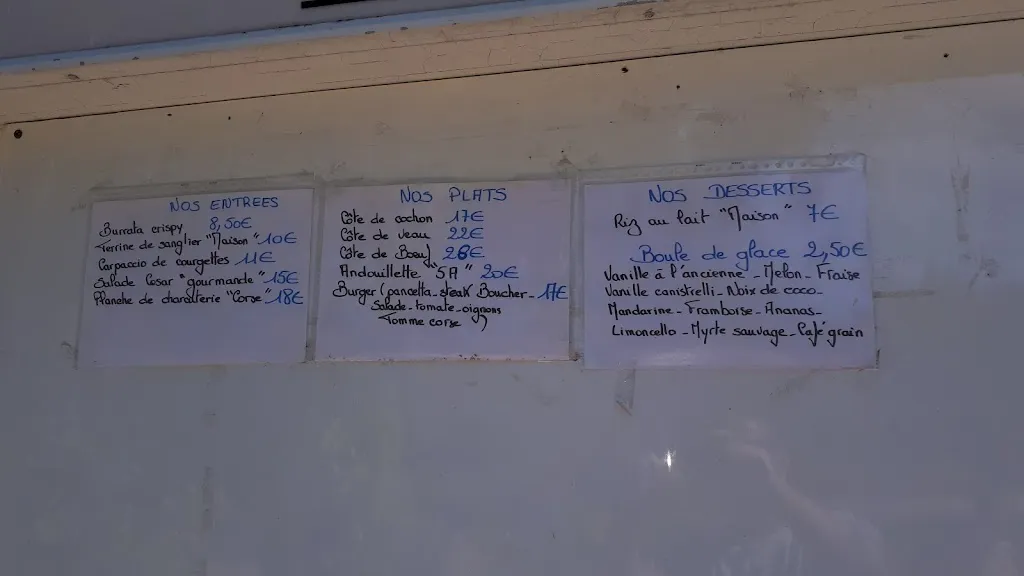 NOS ENTREES
Burrata crispy 8,50€
Terrine de sanglier "Maison" 10€
Carpaccio de courgettes 11€
Salade Cesar "gourmande" 15€
Planche de charcuterie "Corse" 18€
NOS PLATS
Côte de cochon 17€
Côte de veau 22€
Côte de Boeuf 26€
Andouillette "5A" 20€
Burger (pancetta - steak Boucher - 17€
Salade - tomate - oignons
Tomme corse )
NOS DESSERTS
Riz au lait "Maison" 7€
Boule de glace 2,50€
Vanille à l'ancienne - Melon - Fraise
Vanille canistrelli - Noix de coco -
Mandarine - Framboise - Ananas -
Limoncello - Myrte sauvage - Café grain